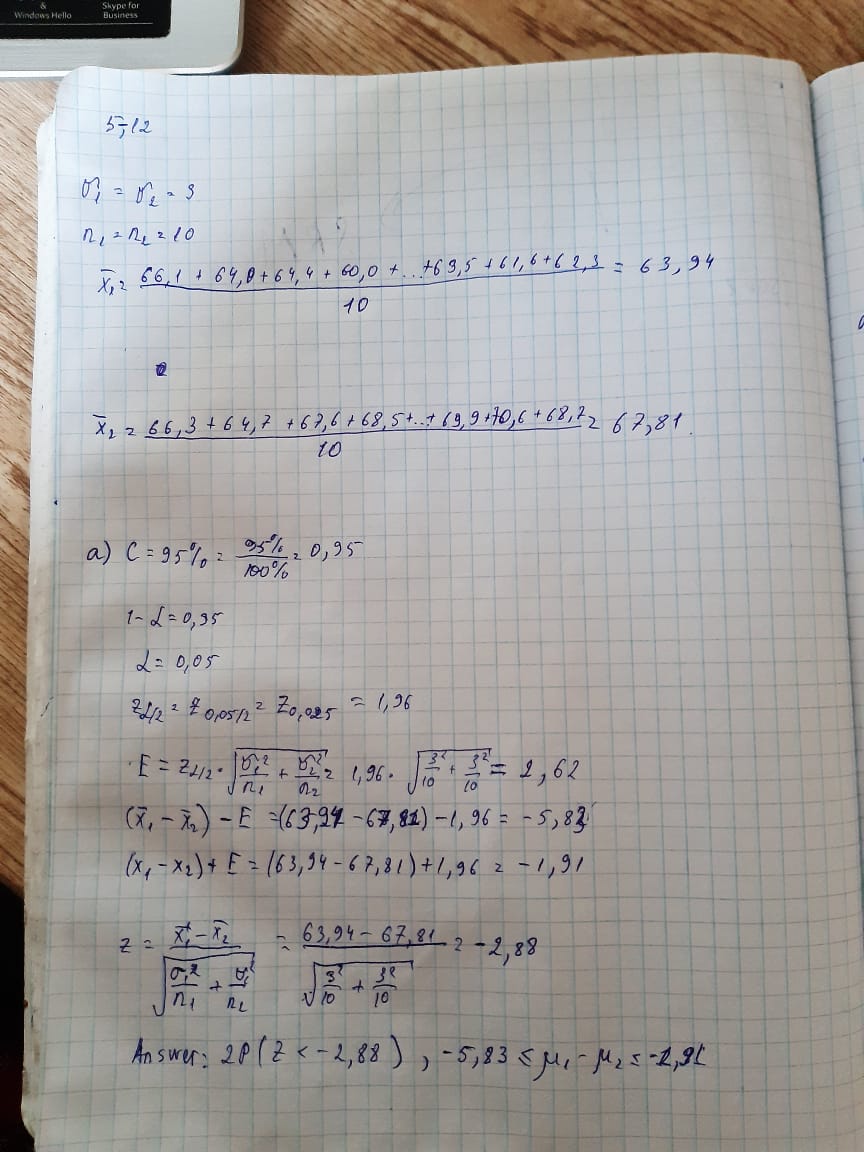 &
Windows Hello
Skype for
Business
5,12
σ₁ = σ₂ = 3
n₁ = n₂ = 10
x̄₁ = (66,1 + 64,0 + 64,4 + 60,0 + ... + 63,5 + 61,6 + 62,3) / 10 = 63,94
x̄₂ = (66,3 + 64,7 + 67,6 + 68,5 + ... + 69,9 + 70,6 + 68,7) / 10 = 67,81.
a) C = 95% = 95% / 100% = 0,95
1 - α = 0,95
α = 0,05
z_α/2 = z_0,05/2 = z_0,025 = 1,96
E = z_α/2 · √(σ₁²/n₁ + σ₂²/n₂) = 1,96 · √(3²/10 + 3²/10) = 2,62
(x̄₁ - x̄₂) - E = (63,94 - 67,81) - 1,96 = -5,83
(x₁ - x₂) + E = (63,94 - 67,81) + 1,96 = -1,91
z = (x̄₁ - x̄₂) / √(σ₁²/n₁ + σ₁²/n₂) = (63,94 - 67,81) / √(3²/10 + 3²/10) = -2,88
Answer: 2P(Z < -2,88), -5,83 ≤ μ₁ - μ₂ ≤ -1,91